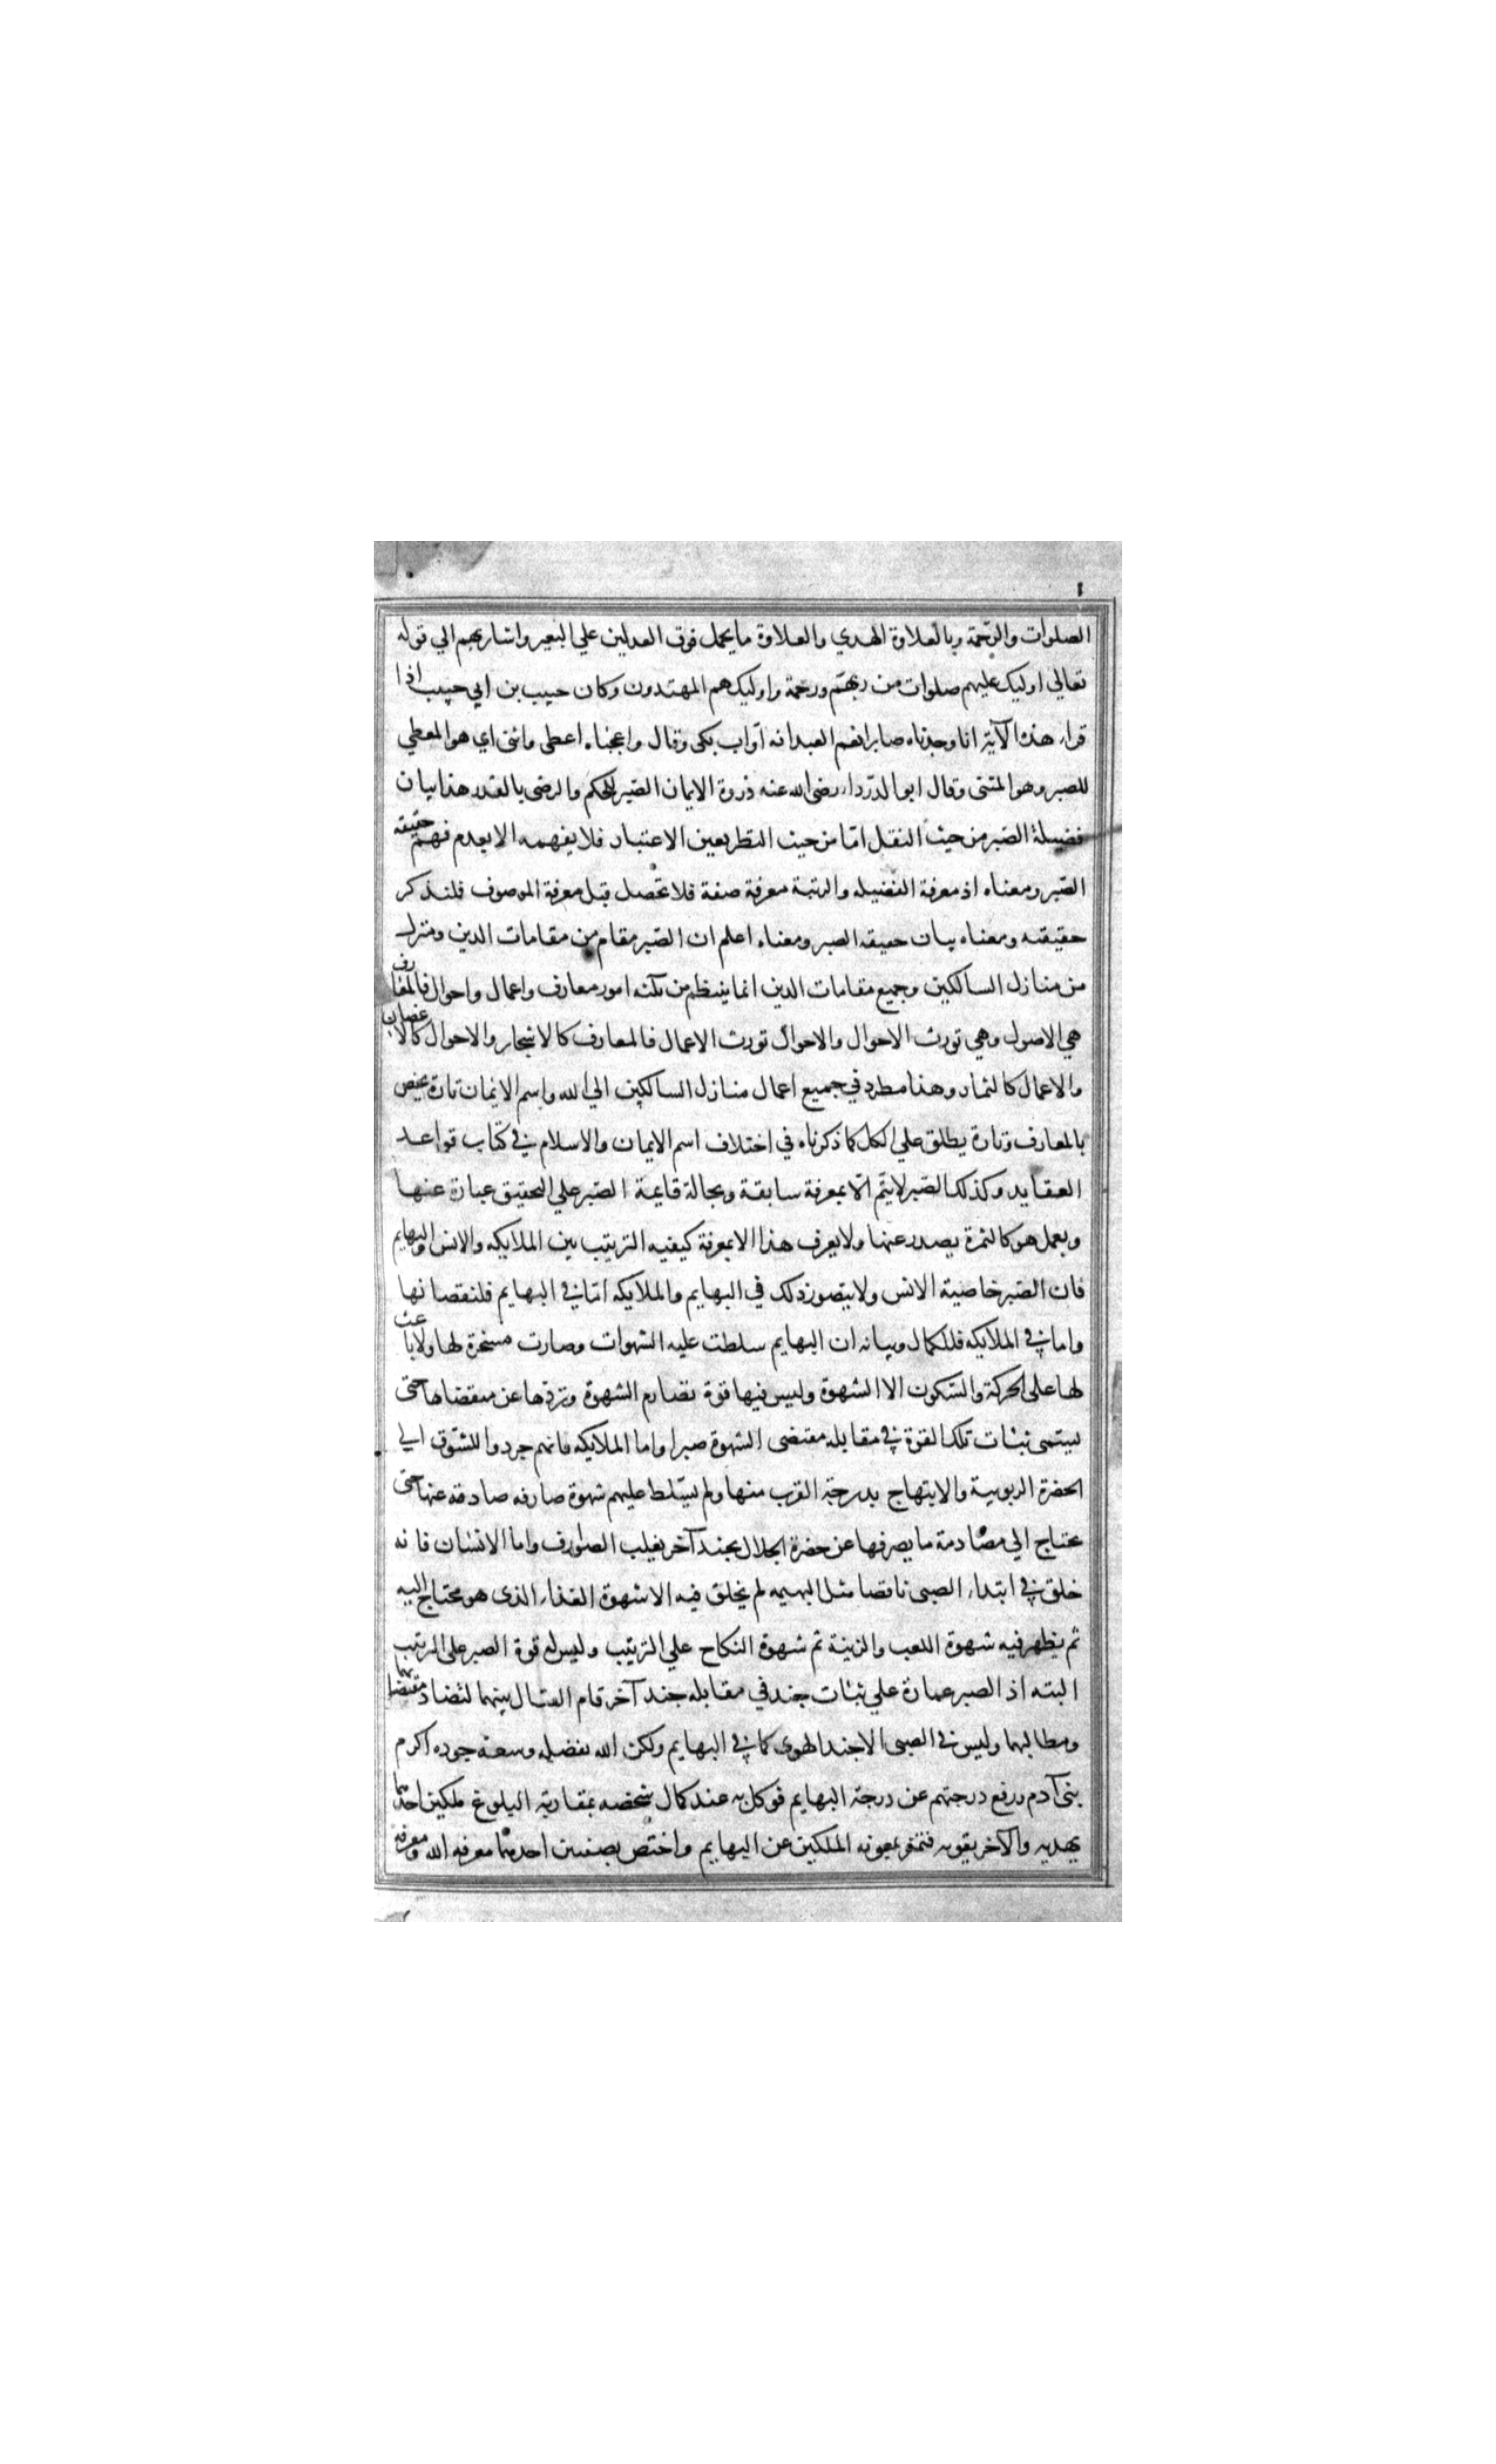 الصلوات والرحمة وبالعلاوة الهدي والعلاوة ما يحمل فوق العدلين علي البعير واشار بهم الي قوله
تعالي اوليك عليهم صلوات من ربهم ورحمة واوليك هم المهتدون وكان حبيب بن ابي حبيب اذا
قراء هذه الآية انا وجدناه صابرا نعم العبد انه اوّاب بكى وقال واعجباه اعطى واثنى اي هو المعطي
للصبر وهو المثنى وقال ابو الدّرداء رضى الله عنه ذروة الايمان الصّبر للحكم والرضى بالقدر هذا بيان
فضيلة الصّبر من حيث النقل امّا من حيث النظر بعين الاعتبار فلا يفهمه الا بعد م فهم حقيقه
الصّبر ومعناه اذ معرفة الفضيله والرتبة معرفة صفة فلا تحصل قبل معرفة الموصوف فلنذكر
حقيقته ومعناه بيان حقيقه الصبر ومعناه اعلم ان الصّبر مقام من مقامات الدين ومنزل
من منازل السالكين وجميع مقامات الدين انما ينتظم من ثلثه امور معارف واعمال واحوال فالمعارف
هي الاصول وهي تورث الاحوال والاحوال تورث الاعمال فالمعارف كالاشجار والاحوال كالاغصان
والاعمال كالثمار وهذا مطرد في جميع اعمال منازل السالكين الي الله واسم الايمان تارة يختص
بالمعارف وتارة يطلق علي الكل كما ذكرناه في اختلاف اسم الايمان والاسلام في كتاب قواعد
العقايد وكذلك الصّبر لا يتم الّا بمعرفة سابقة وبحالة قايمة الصّبر علي التحقيق عبارة عنها
وبعمل هو كالثمرة يصدر عنها ولا يعرف هذا الا بمعرفة كيفيه الترتيب بين الملايكه والانس والبهايم
فان الصّبر خاصية الانس ولا يتصور ذلك في البهايم والملايكه امّا في البهايم فلنقصانها
واما في الملايكه فللكمال وبيانه ان البهايم سلطت عليه الشهوات وصارت مسخرة لها ولا باعث
لها على الحركة والسّكون الا الشهوة وليس فيها قوة تصادم الشهوة وتردّها عن مقتضاها حتى
يسمى ثبات تلك القوة في مقابله مقتضى الشهوة صبرا واما الملايكه فانهم جردوا للشوق الي
الحضرة الربوبية والابتهاج بدرجة القرب منها ولم تسلط عليهم شهوة صارفه صادفه عنها حتى
يحتاج الي مصادمة ما يصرفها عن حضرة الجلال بجند آخر يغلب الصوارف واما الانسان فانه
خلق في ابتداء الصبى ناقصا مثل البهيمه لم يخلق فيه الا شهوة الغذاء الذى هو محتاج اليه
ثم يظهر فيه شهوة اللعب والزينة ثم شهوة النكاح علي الترتيب وليس له قوة الصبر على المرتب
البته اذ الصبر عبارة علي ثبات جند في مقابله جند آخر قام القتال بينهما لتضاد مقتضاهما
ومطالبهما وليس في الصبى الا جند الهوى كما في البهايم ولكن الله بفضله وسعة جوده اكرم
بنى آدم ورفع درجتهم عن درجة البهايم فوكل به عند كمال شخصه بمقاربة البلوغ ملكين احدهما
يهديه والآخر يقويه فتميز بمعونه الملكين عن البهايم واختص بصفتين احدهما معرفه الله ومعرفة